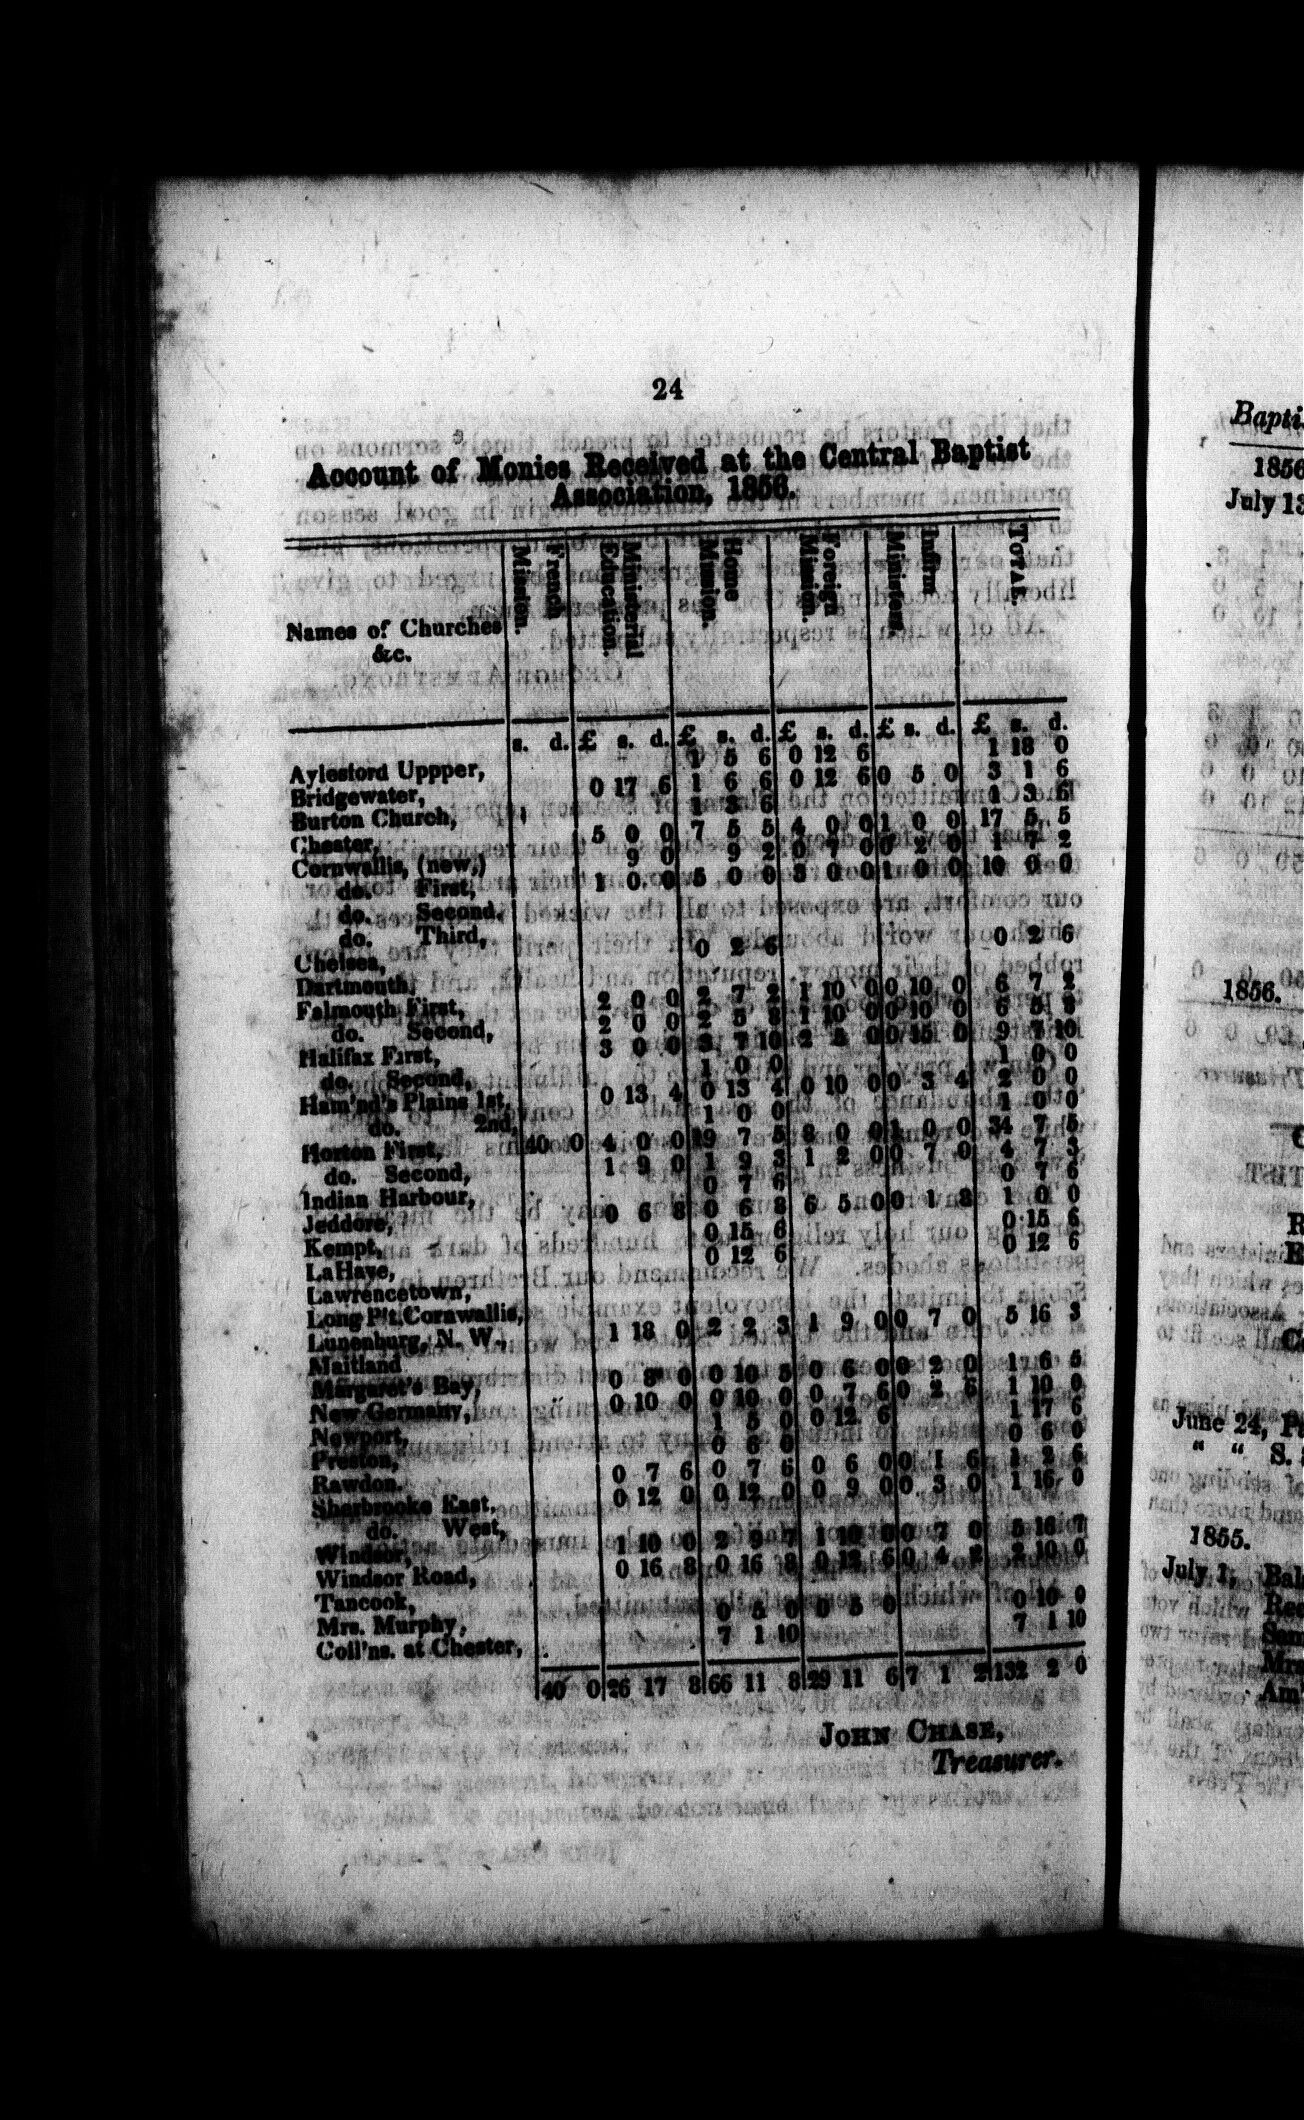 24
Account of Monies Received at the Central Baptist
Association, 1856.
Names of Churches &c. French Mission. Ministerial Education. Home Mission. Foreign Mission. Infirm Ministers TOTAL.
s. d. £ s. d. £ s. d. £ s. d. £ s. d. £ s. d.
Aylesford Uppper, 1 5 6 0 12 6 1 18 0
Bridgewater, 0 17 6 1 6 6 0 12 6 0 5 0 3 1 6
Burton Church, 1 3 6 1 3 6
Chester, 5 0 0 7 5 5 4 0 0 1 0 0 17 5 5
Cornwallis, (new,) 9 0 9 2 0 7 0 0 2 0 1 7 2
do. First, 1 0 0 5 0 0 3 0 0 1 0 0 10 0 0
do. Second,
do. Third,
Chelsea, 0 2 6 0 2 6
Dartmouth,
Falmouth First, 2 0 0 2 7 2 1 10 0 0 10 0 6 7 2
do. Second, 2 0 0 2 5 8 1 10 0 0 10 0 6 5 8
Halifax First, 3 0 0 3 7 10 2 5 0 0 15 0 9 7 10
do. Second, 1 0 0 1 0 0
Ham'nd's Plains 1st, 0 13 4 0 13 4 0 10 0 0 3 4 2 0 0
do. 2nd, 1 0 0 1 0 0
Horton First, 40 0 4 0 0 19 7 5 8 0 0 1 0 0 34 7 5
do. Second, 1 9 0 1 9 3 1 2 0 0 7 0 4 7 3
Indian Harbour, 0 7 6 0 7 6
Jeddore, 0 6 8 0 6 8 6 5 0 0 1 8 1 0 0
Kempt, 0 15 6 0 15 6
LaHave, 0 12 6 0 12 6
Lawrencetown,
Long Pt. Cornwallis,
Lunenburg, N. W., 1 18 0 2 2 3 1 9 0 0 7 0 5 16 3
Maitland
Margaret's Bay, 0 8 0 0 10 5 0 6 0 0 2 0 1 6 5
New Germany, 0 10 0 0 10 0 0 7 6 0 2 6 1 10 0
Newport, 1 5 0 0 12 6 1 17 6
Preston, 0 6 0 0 6 0
Rawdon. 0 7 6 0 7 6 0 6 0 0 1 6 1 2 6
Sherbrooke East, 0 12 0 0 12 0 0 9 0 0 3 0 1 16 0
do. West,
Windsor, 1 10 0 2 9 7 1 10 0 0 7 0 5 16 7
Windsor Road, 0 16 8 0 16 8 0 12 6 0 4 2 2 10 0
Tancook,
Mrs. Murphy, 0 5 0 0 5 0 0 10 0
Coll'ns. at Chester, 7 1 10 7 1 10
40 0 26 17 8 66 11 8 29 11 6 7 1 2 132 2 0
JOHN CHASE,
Treasurer.
1856
July 13
1856.
June 24,
" " S.
1855.
July 1,